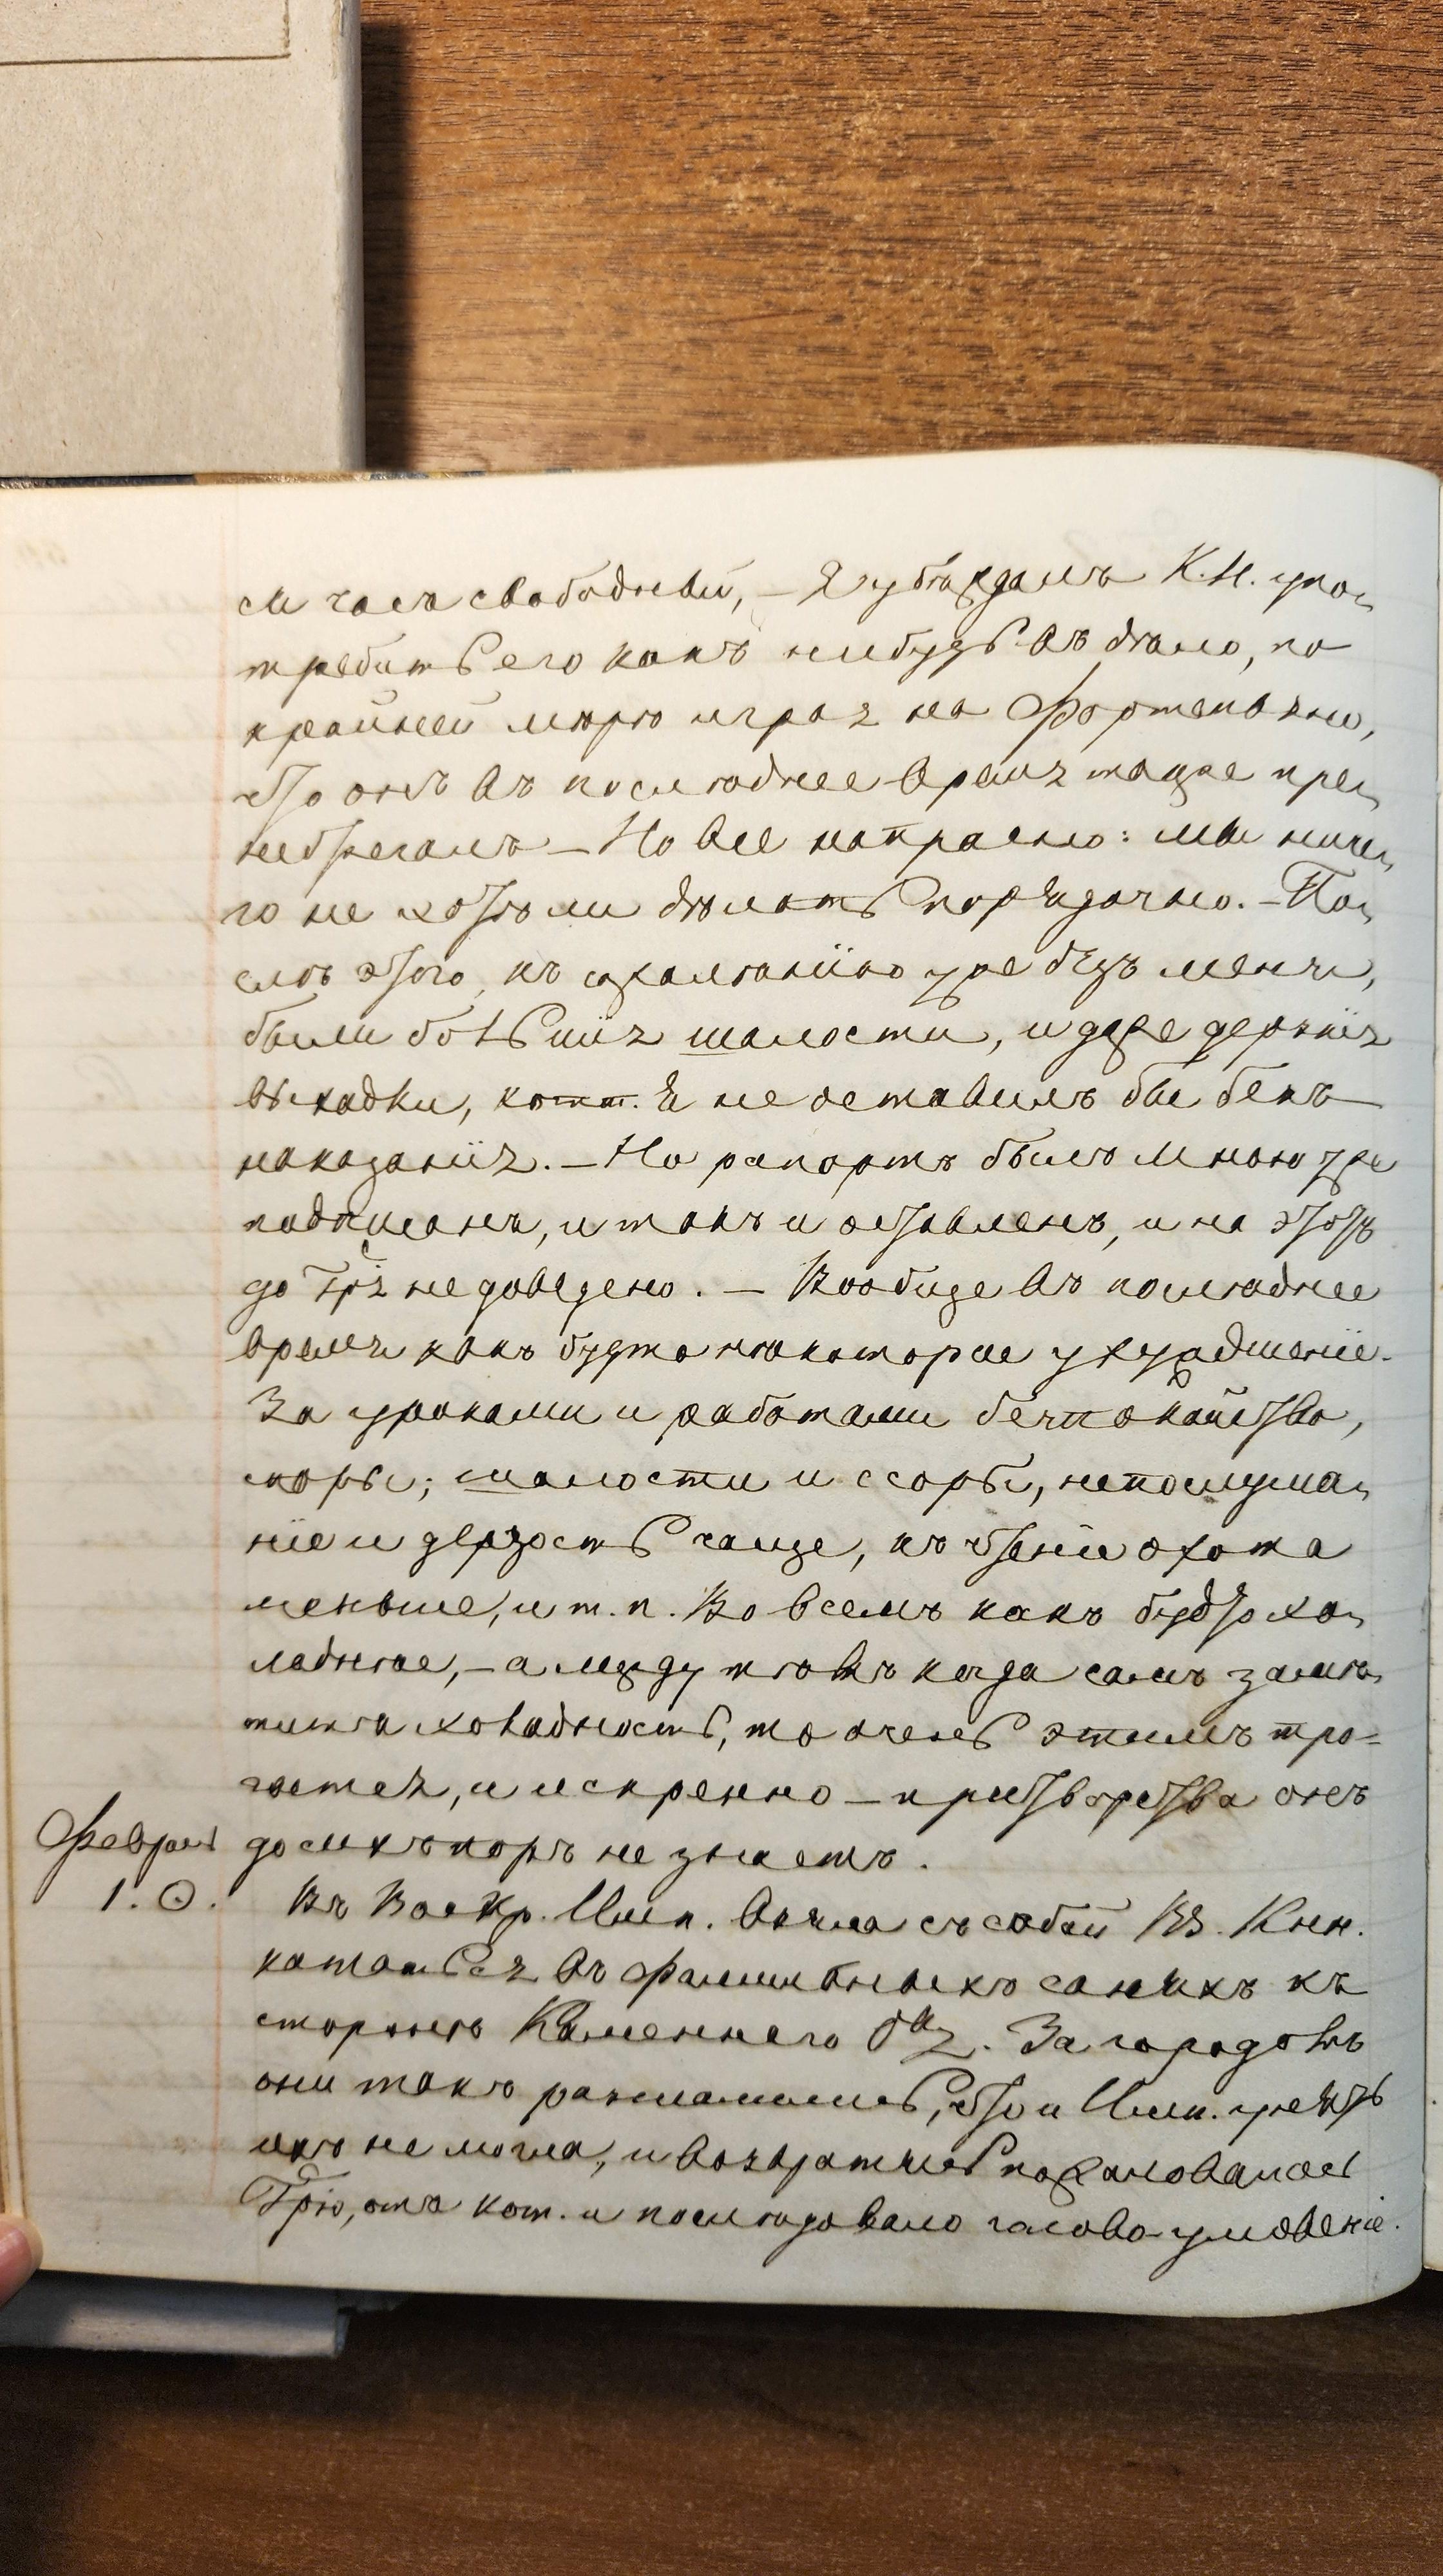 ся часъ свободный, — Я убѣждалъ К.Н. упо-
требить его какъ нибудь въ дѣло, по
крайней мѣрѣ играя на фортепьяно,
что онъ въ послѣднее время также пре-
небрегалъ — Но все напрасно: мы ниче-
го не хотѣли дѣлать порядочно. — По-
слѣ этого, къ сожалѣнію уже безъ меня,
были большія шалости, и даже дерзкія
выходки, котт. я не оставилъ бы безъ
наказанія. — Но рапортъ былъ мною уже
подписанъ, и такъ и оставленъ, и на этотъ
до Гря не доведено. — Вообще въ послѣднее
время какъ будто нѣкоторое ухудшеніе.
За уроками и работами безпокойство,
споры; шалости и ссоры, непослуша-
ніе и дерзость чаще, къ чтенію охота
меньше, и т. п. Во всемъ какъ будто хо-
лоднѣе, — а между тѣмъ когда самъ замѣ-
титъ холодность, то очень этимъ тро-
гается, и искренно — притворства онъ
до сихъ поръ не знаетъ.
Февраль
1. ☉. Въ Воскр. Имп. взяла съ собой В. Кнн.
кататься въ фамильныхъ саняхъ къ
сторонѣ Каменнаго Ова. За городомъ
они такъ расшалились, что и Имп. унять
ихъ не могла, и возвратясь пожаловалась
Грю, отъ кот. и послѣдовало головоумовеніе.